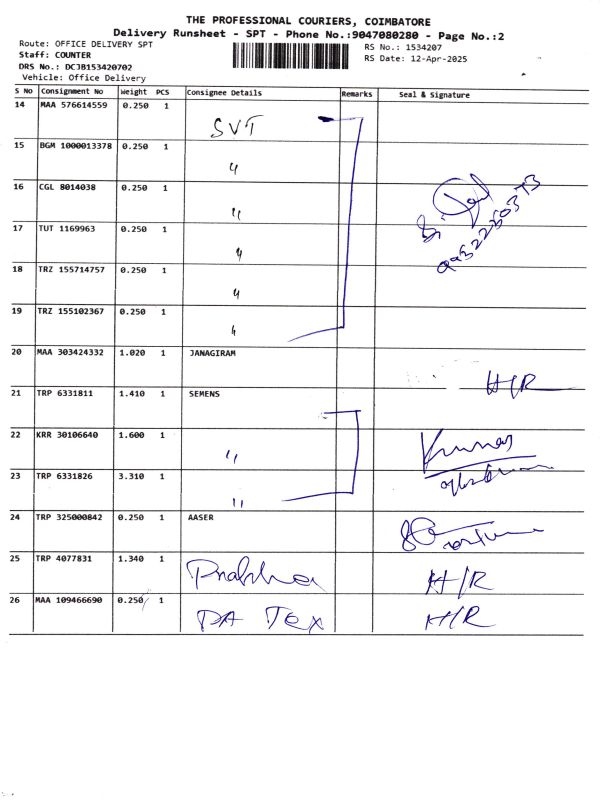 THE PROFESSIONAL COURIERS, COIMBATORE
Delivery Runsheet - SPT - Phone No.:9047080280 - Page No.:2
Route: OFFICE DELIVERY SPT
RS No.: 1534207
Staff: COUNTER
RS Date: 12-Apr-2025
DRS No.: DCJB153420702
Vehicle: Office Delivery
S No Consignment No Weight PCS Consignee Details Remarks Seal & Signature
14 MAA 576614559 0.250 1
SVT
15 BGM 1000013378 0.250 1
"
16 CGL 8014038 0.250 1
"
17 TUT 1169963 0.250 1
"
18 TRZ 155714757 0.250 1
"
19 TRZ 155102367 0.250 1
"
20 MAA 303424332 1.020 1 JANAGIRAM
H/R
21 TRP 6331811 1.410 1 SEMENS
22 KRR 30106640 1.600 1
" Kumar
23 TRP 6331826 3.310 1
"
24 TRP 325000842 0.250 1 AASER
25 TRP 4077831 1.340 1
Prabha H/R
26 MAA 109466690 0.250 1
PA Tex H/R